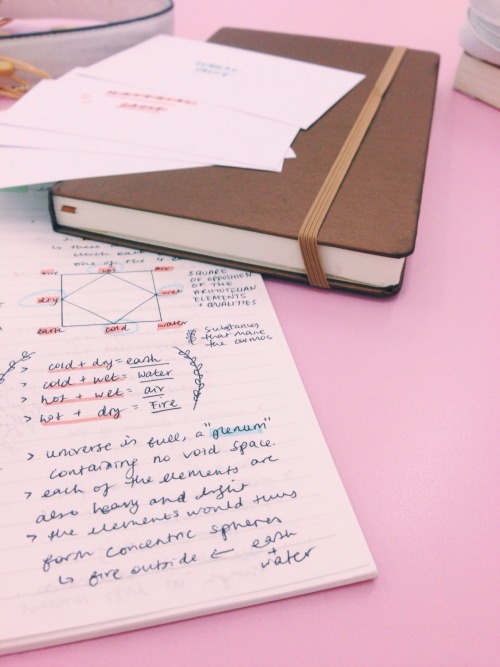 one of the 4
fire hot air
dry wet
earth cold water
SQUARE
OF OPPOSITION
OF THE
ARISTOTELIAN
ELEMENTS
+ QUALITIES
substances
that make
the cosmos
> cold + dry = earth
> cold + wet = water
> hot + wet = air
> hot + dry = Fire
> universe is full, a "plenum"
containing no void space.
> each of the elements are
also heavy and light
> the elements would thus
form concentric spheres
↳ fire outside ← earth
+
water